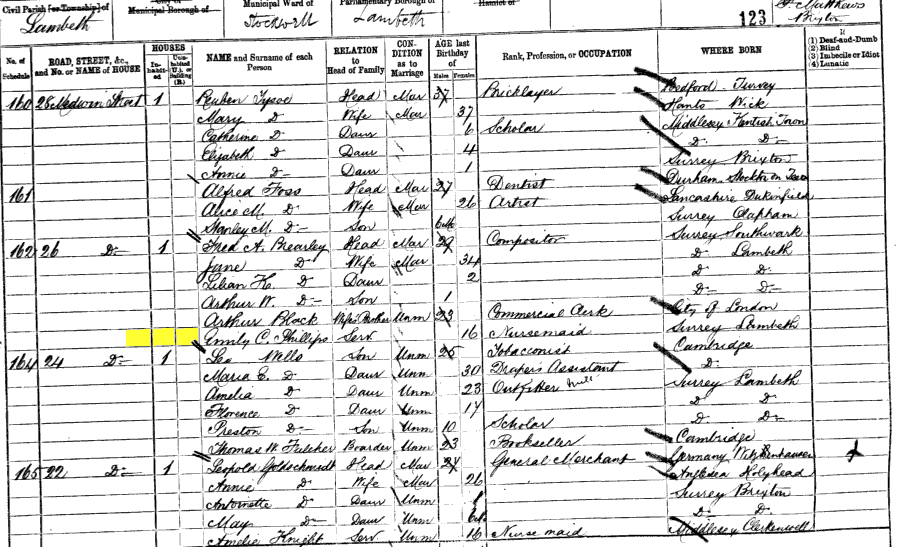 Civil Parish [or Township] of
Lambeth
City or
Municipal Borough of
Municipal Ward of
Stockwell
Parliamentary Borough of
Lambeth
Hamlet of
123
St Matthews
Brixton
No. of Schedule | ROAD, STREET, &c., and No. or NAME of HOUSE | HOUSES | Inhabited | Uninhabited (U.), or Building (B.) | NAME and Surname of each Person | RELATION to Head of Family | CONDITION as to Marriage | AGE last Birthday of | Males | Females | Rank, Profession, or OCCUPATION | WHERE BORN | If (1) Deaf-and-Dumb (2) Blind (3) Imbecile or Idiot (4) Lunatic
160 28 Medwin Street 1 Reuben Tysoe Head Mar 37 Bricklayer Bedford Turvey
Mary Do Wife Mar 37 Hants Wick
Catherine Do Daur 6 Scholar Middlesex Kentish Town
Elizabeth Do Daur 4 Do Do
Annie Do Daur 1 Surrey Brixton
161 Alfred Foss Head Mar 27 Dentist Durham Stockton on Tees
Alice M. Do Wife Mar 26 Artist Lancashire Dukinfield
Stanley M. Do Son Surrey Clapham
162 26 Do 1 Fred A. Brearley Head Mar 29 Compositor Surrey Southwark
Jane Do Wife Mar 34 Do Lambeth
Lilian H. Do Daur 2 Do Do
Arthur W. Do Son 1 Do Do
Arthur Black Wife's Brother Unm 23 Commercial Clerk City of London
Emily C. Phillips Serv 16 Nursemaid Surrey Lambeth
164 24 Do 1 Wells Son Unm 25 Tobacconist Cambridge
Maria E. Do Daur Unm 30 Drapers Assistant Do
Amelia Do Daur Unm 23 Outfitter Surrey Lambeth
Florence Do Daur Unm 17 Do Do
Preston Do Son Unm 10 Scholar Do Do
Thomas W. Fulcher Boarder Unm 23 Bookseller Cambridge
165 22 Do 1 Leopold Goldschmidt Head Mar 24 General Merchant Germany
Annie Do Wife Mar 26 Anglesea Holyhead
Antoinette Do Daur Unm 1 Surrey Brixton
May Do Daur Unm Do Do
Amelia Knight Serv Unm 16 Nurse maid Middlesex Clerkenwell